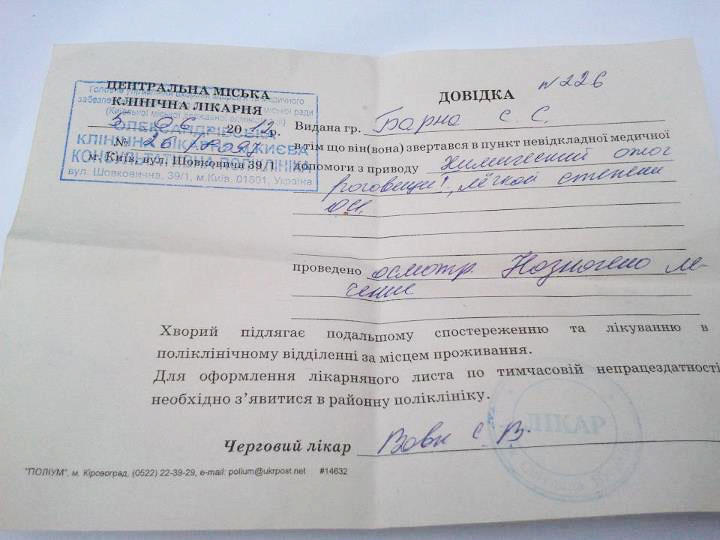 ЦЕНТРАЛЬНА МІСЬКА
КЛІНІЧНА ЛІКАРНЯ
2012 р.
№ 26
м. Київ, вул. Шовковична 39/1
КЛІНІЧНА ЛІКАРНЯ м. КИЄВА
КОНСУЛЬТАТИВНА ПОЛІКЛІНІКА
вул. Шовковична, 39/1, м.Київ, 01601, Україна
ДОВІДКА №226
Видана гр. Барна С. С.
в тім що він(вона) звертався в пункт невідкладної медичної
допомоги з приводу Химический ожог
роговицы, лёгкой степени
OU.
проведено осмотр. Назначено ле-
чение
Хворий підлягає подальшому спостереженню та лікуванню в
поліклінічному відділенні за місцем проживання.
Для оформлення лікарняного листа по тимчасовій непрацездатності
необхідно з’явитися в районну поліклініку.
Черговий лікар Вовк С В.
ЛІКАР
"ПОЛІУМ", м. Кіровоград, (0522) 22-39-29, e-mail: polium@ukrpost.net #14632